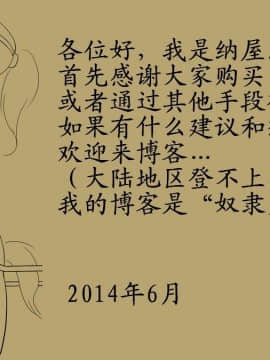 各位好，我是纳屋
首先感谢大家购买
或者通过其他手段
如果有什么建议和
欢迎来博客…
（大陆地区登不上
我的博客是“奴隶
2014年6月